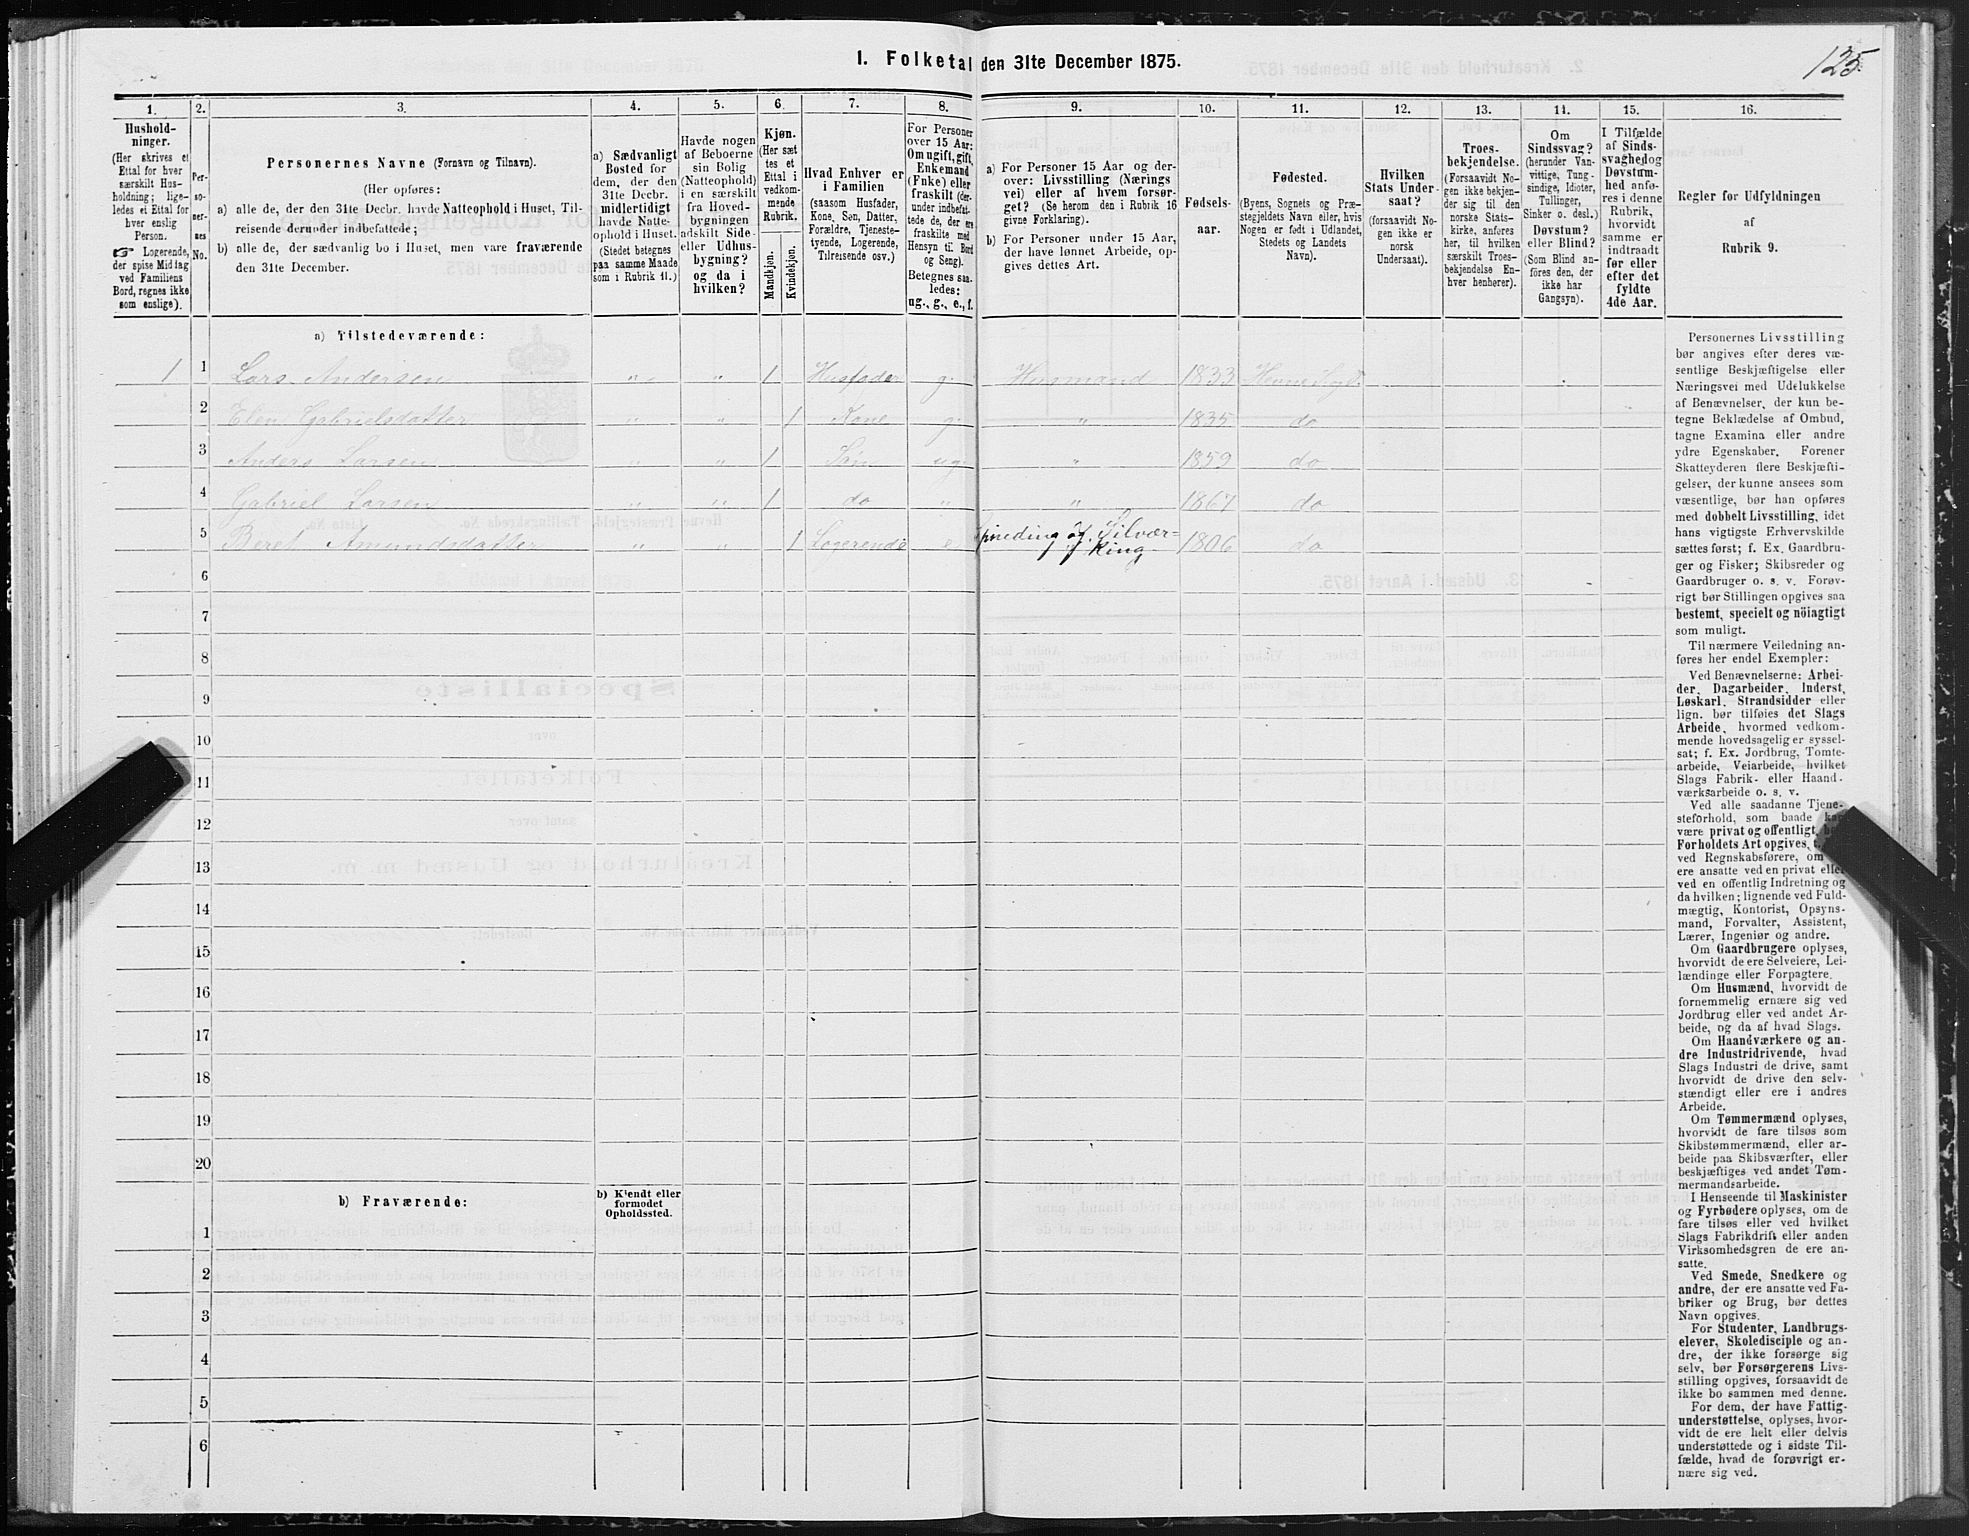 1. Folketal den 31te December 1875.
125.
1.
Hushold-
ninger.
(Her skrives et
Ettal for hver
særskilt Hus-
holdning; lige-
ledes et Ettal for
hver enslig
Person.
☞ Logerende,
der spise Middag
ved Familiens
Bord, regnes ikke
som enslige).
2.
Per-
so-
ner-
nes
No.
3.
Personernes Navne (Fornavn og Tilnavn).
(Her opføres:
a) alle de, der den 31te Decbr. havde Natteophold i Huset, Til-
reisende derunder indbefattede;
b) alle de, der sædvanlig bo i Huset, men vare fraværende
den 31te December.
4.
a) Sædvanligt
Bosted for
dem, der den
31te Decbr.
midlertidigt
havde Natte-
ophold i Huset.
(Stedet betegnes
paa samme Maade
som i Rubrik 11.)
5.
Havde nogen
af Beboerne
sin Bolig
(Natteophold)
i en særskilt
fra Hoved-
bygningen
adskilt Side-
eller Udhus-
bygning?
og da i
hvilken?
6.
Kjøn.
(Her sæt
tes et
Ettal i
vedkom-
mende
Rubrik.
Mandkjøn.
Kvindekjøn.
7.
Hvad Enhver er
i Familien
(saasom Husfader,
Kone, Søn, Datter,
Forældre, Tjeneste-
tyende, Logerende,
Tilreisende osv.)
8.
For Personer
over 15 Aar:
Om ugift, gift,
Enkemand
(Enke) eller
fraskilt (der-
under indbefat-
tede de, der ere
fraskilte med
Hensyn til Bord
og Seng).
Betegnes saa-
ledes:
ug., g., e., f.
9.
a) For Personer 15 Aar og der-
over: Livsstilling (Nærings
vei) eller af hvem forsør-
get? (Se herom den i Rubrik 16
givne Forklaring).
b) For Personer under 15 Aar,
der have lønnet Arbeide, op-
gives dettes Art.
10.
Fødsels-
aar.
11.
Fødested.
(Byens, Sognets og Præ-
stegjeldets Navn eller, hvis
Nogen er født i Udlandet,
Stedets og Landets
Navn).
12.
Hvilken
Stats Under-
saat?
(forsaavidt No-
gen ikke er
norsk
Undersaat).
13.
Troes-
bekjendelse.
(Forsaavidt No-
gen ikke bekjen-
der sig til den
norske Stats-
kirke, anføres
her, til hvilken
særskilt Troes-
bekjendelse En-
hver henhører).
14.
Om
Sindssvag?
(herunder Van-
vittige, Tung-
sindige, Idioter,
Tullinger,
Sinker o. desl.)
Døvstum?
eller Blind?
(Som Blind an-
føres den, der
ikke har
Gangsyn).
15.
I Tilfælde
af Sinds-
svaghed og
Døvstum-
hed anfø-
res i denne
Rubrik,
hvorvidt
samme er
indtraadt
før eller
efter det
fyldte
4de Aar.
16.
Regler for Udfyldningen
af
Rubrik 9.
a) Tilstedeværende:
1 1 Lars Andersen " " 1 Husfader g. Husmand 1833
2 Elen Gabrielsdatter " " 1 Kone g. " 1835 do
3 Anders Larsen " " 1 Søn ug. " 1859 do
4 Gabriel Larsen " " 1 do " " 1867 do
5 Beret Amundsdatter " " 1 Logerende e 1806 do
6
7
8
9
10
11
12
13
14
15
16
17
18
19
20
b) Fraværende:
b) Kjendt eller
formodet
Opholdssted.
1
2
3
4
5
6
Personernes Livsstilling
bør angives efter deres væ-
sentlige Beskjæftigelse eller
Næringsvei med Udelukkelse
af Benævnelser, der kun be-
tegne Beklædelse af Ombud,
tagne Examina eller andre
ydre Egenskaber. Forener
Skatteyderen flere Beskjæfti-
gelser, der kunne ansees som
væsentlige, bør han opføres
med dobbelt Livsstilling, idet
hans vigtigste Erhvervskilde
sættes først; f. Ex. Gaardbru-
ger og Fisker; Skibsreder og
Gaardbruger o. s. v. Forøv-
rigt bør Stillingen opgives saa
bestemt, specielt og nöiagtigt
som muligt.
Til nærmere Veiledning an-
føres her endel Exempler:
Ved Benævnelserne: Arbei-
der, Dagarbeider, Inderst,
Løskarl, Strandsidder eller
lign. bør tilføies det Slags
Arbeide, hvormed vedkom-
mende hovedsagelig er syssel-
sat; f. Ex. Jordbrug, Tomte-
arbeide, Veiarbeide, hvilket
Slags Fabrik- eller Haand-
værksarbeide o. s. v.
Ved alle saadanne Tjene-
steforhold, som baade
være privat og offentligt,
Forholdets Art opgives,
ved Regnskabsførere, om
ere ansatte ved en privat eller
ved en offentlig Indretning og
da hvilken; lignende ved Fuld-
mægtig, Kontorist, Opsyns-
mand, Forvalter, Assistent,
Lærer, Ingeniør og andre.
Om Gaardbrugere oplyses,
hvorvidt de ere Selveiere, Lei-
lændinge eller Forpagtere.
Om Husmænd, hvorvidt de
fornemmelig ernære sig ved
Jordbrug eller ved andet Ar-
beide, og da af hvad Slags.
Om Haandværkere og an-
dre Industridrivende, hvad
Slags Industri de drive, samt
hvorvidt de drive den selv-
stændigt eller ere i andres
Arbeide.
Om Tømmermænd oplyses,
hvorvidt de fare tilsøs som
Skibstømmermænd, eller ar-
beide paa Skibsværfter, eller
beskjæftiges ved andet Tøm-
mermandsarbeide.
I Henseende til Maskinister
og Fyrbødere oplyses, om de
fare tilsøs eller ved hvilket
Slags Fabrikdrift eller anden
Virksomhedsgren de ere an-
satte.
Ved Smede, Snedkere og
andre, der ere ansatte ved Fa-
briker og Brug, bør dettes
Navn opgives.
For Studenter, Landbrugs-
elever, Skoledisciple og an-
dre, der ikke forsørge sig
selv, bør Forsørgerens Livs-
stilling opgives, forsaavidt de
ikke bo sammen med denne.
For dem, der have Fattig-
understøttelse, oplyses, hvor-
vidt de ere helt eller delvis
understøttede og i sidste Til-
fælde, hvad de forøvrigt er-
nære sig ved.